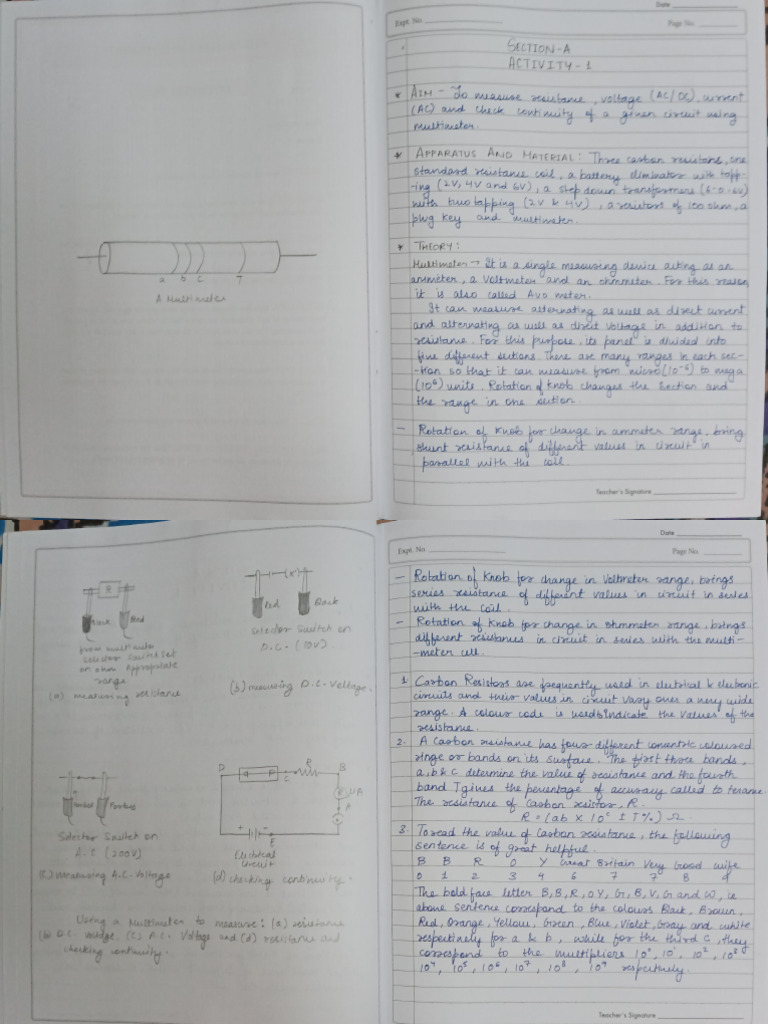 a b c T
A Multimeter
Date
Expt. No.
Page No.
SECTION-A
ACTIVITY-1
* AIM - To measure resistance, voltage (AC/DC), current
(AC) and check continuity of a given circuit using
multimeter.
* APPARATUS AND MATERIAL: Three carbon resistors, one
standard resistance coil, a battery eliminator with tapp-
-ing (2V, 4V and 6V), a step down transformers (6-0-6V)
with two tapping (2V & 4V), a resistors of 100 ohm, a
plug key and multimeter.
* THEORY:
Multimeter → It is a single measuring device acting as an
ammeter, a voltmeter and an ohmmeter. For this reason
it is also called Avo meter.
It can measure alternating as well as direct current
and alternating as well as direct voltage in addition to
resistance. For this purpose, its panel is divided into
five different sections. There are many ranges in each sec-
-tion so that it can measure from micro (10⁻⁶) to mega
(10⁶) units. Rotation of knob changes the section and
the range in one section.
- Rotation of knob for change in ammeter range, bring
shunt resistance of different values in circuit in
parallel with the coil.
Teacher's Signature
R
Red
from multimeter
selector switch set
on ohm appropriate
range
(a) measuring resistance
Red Back
Selector Switch on
D.C. (10V).
(b) measuring D.C. Voltage.
Selector Switch on
A.C (200V)
(c) Measuring A.C. Voltage
D R B
C
A
E
Electrical
circuit
(d) checking continuity.
Using a Multimeter to measure: (a) resistance
(b) D.C. voltage. (c) A.C. Voltage and (d) resistance and
checking continuity.
Date
Expt. No.
Page No.
- Rotation of Knob for change in Voltmeter range, brings
series resistance of different values in circuit in series
with the coil.
- Rotation of Knob for change in ohmmeter range, brings
different resistances in circuit in series with the multi-
-meter cell.
1. Carbon Resistors are frequently used in electrical & electronic
circuits and their values in circuit vary over a very wide
range. A colour code is used to indicate the values of the
resistance.
2. A Carbon resistance has four different concentric coloured
rings or bands on its surface. The first three bands,
a, b & c determine the value of resistance and the fourth
band T gives the percentage of accuracy called to terance.
The resistance of Carbon resistor, R.
R = (ab × 10ᶜ ± T%) Ω.
3. To read the value of Carbon resistance, the following
sentence is of great helpful.
B B R O Y Great Britain Very Good wife
0 1 2 3 4 6 7 7 8 9
The bold face letter B, B, R, O Y, G, B, V, G and W, is
above sentence correspond to the colours Back, Brown,
Red, Orange, Yellow, Green, Blue, Violet, Gray and white
respectively for a & b, while for the third c, they
correspond to the multipliers 10⁰, 10¹, 10², 10³
10⁴, 10⁵, 10⁶, 10⁷, 10⁸, 10⁹ respectively.
Teacher's Signature